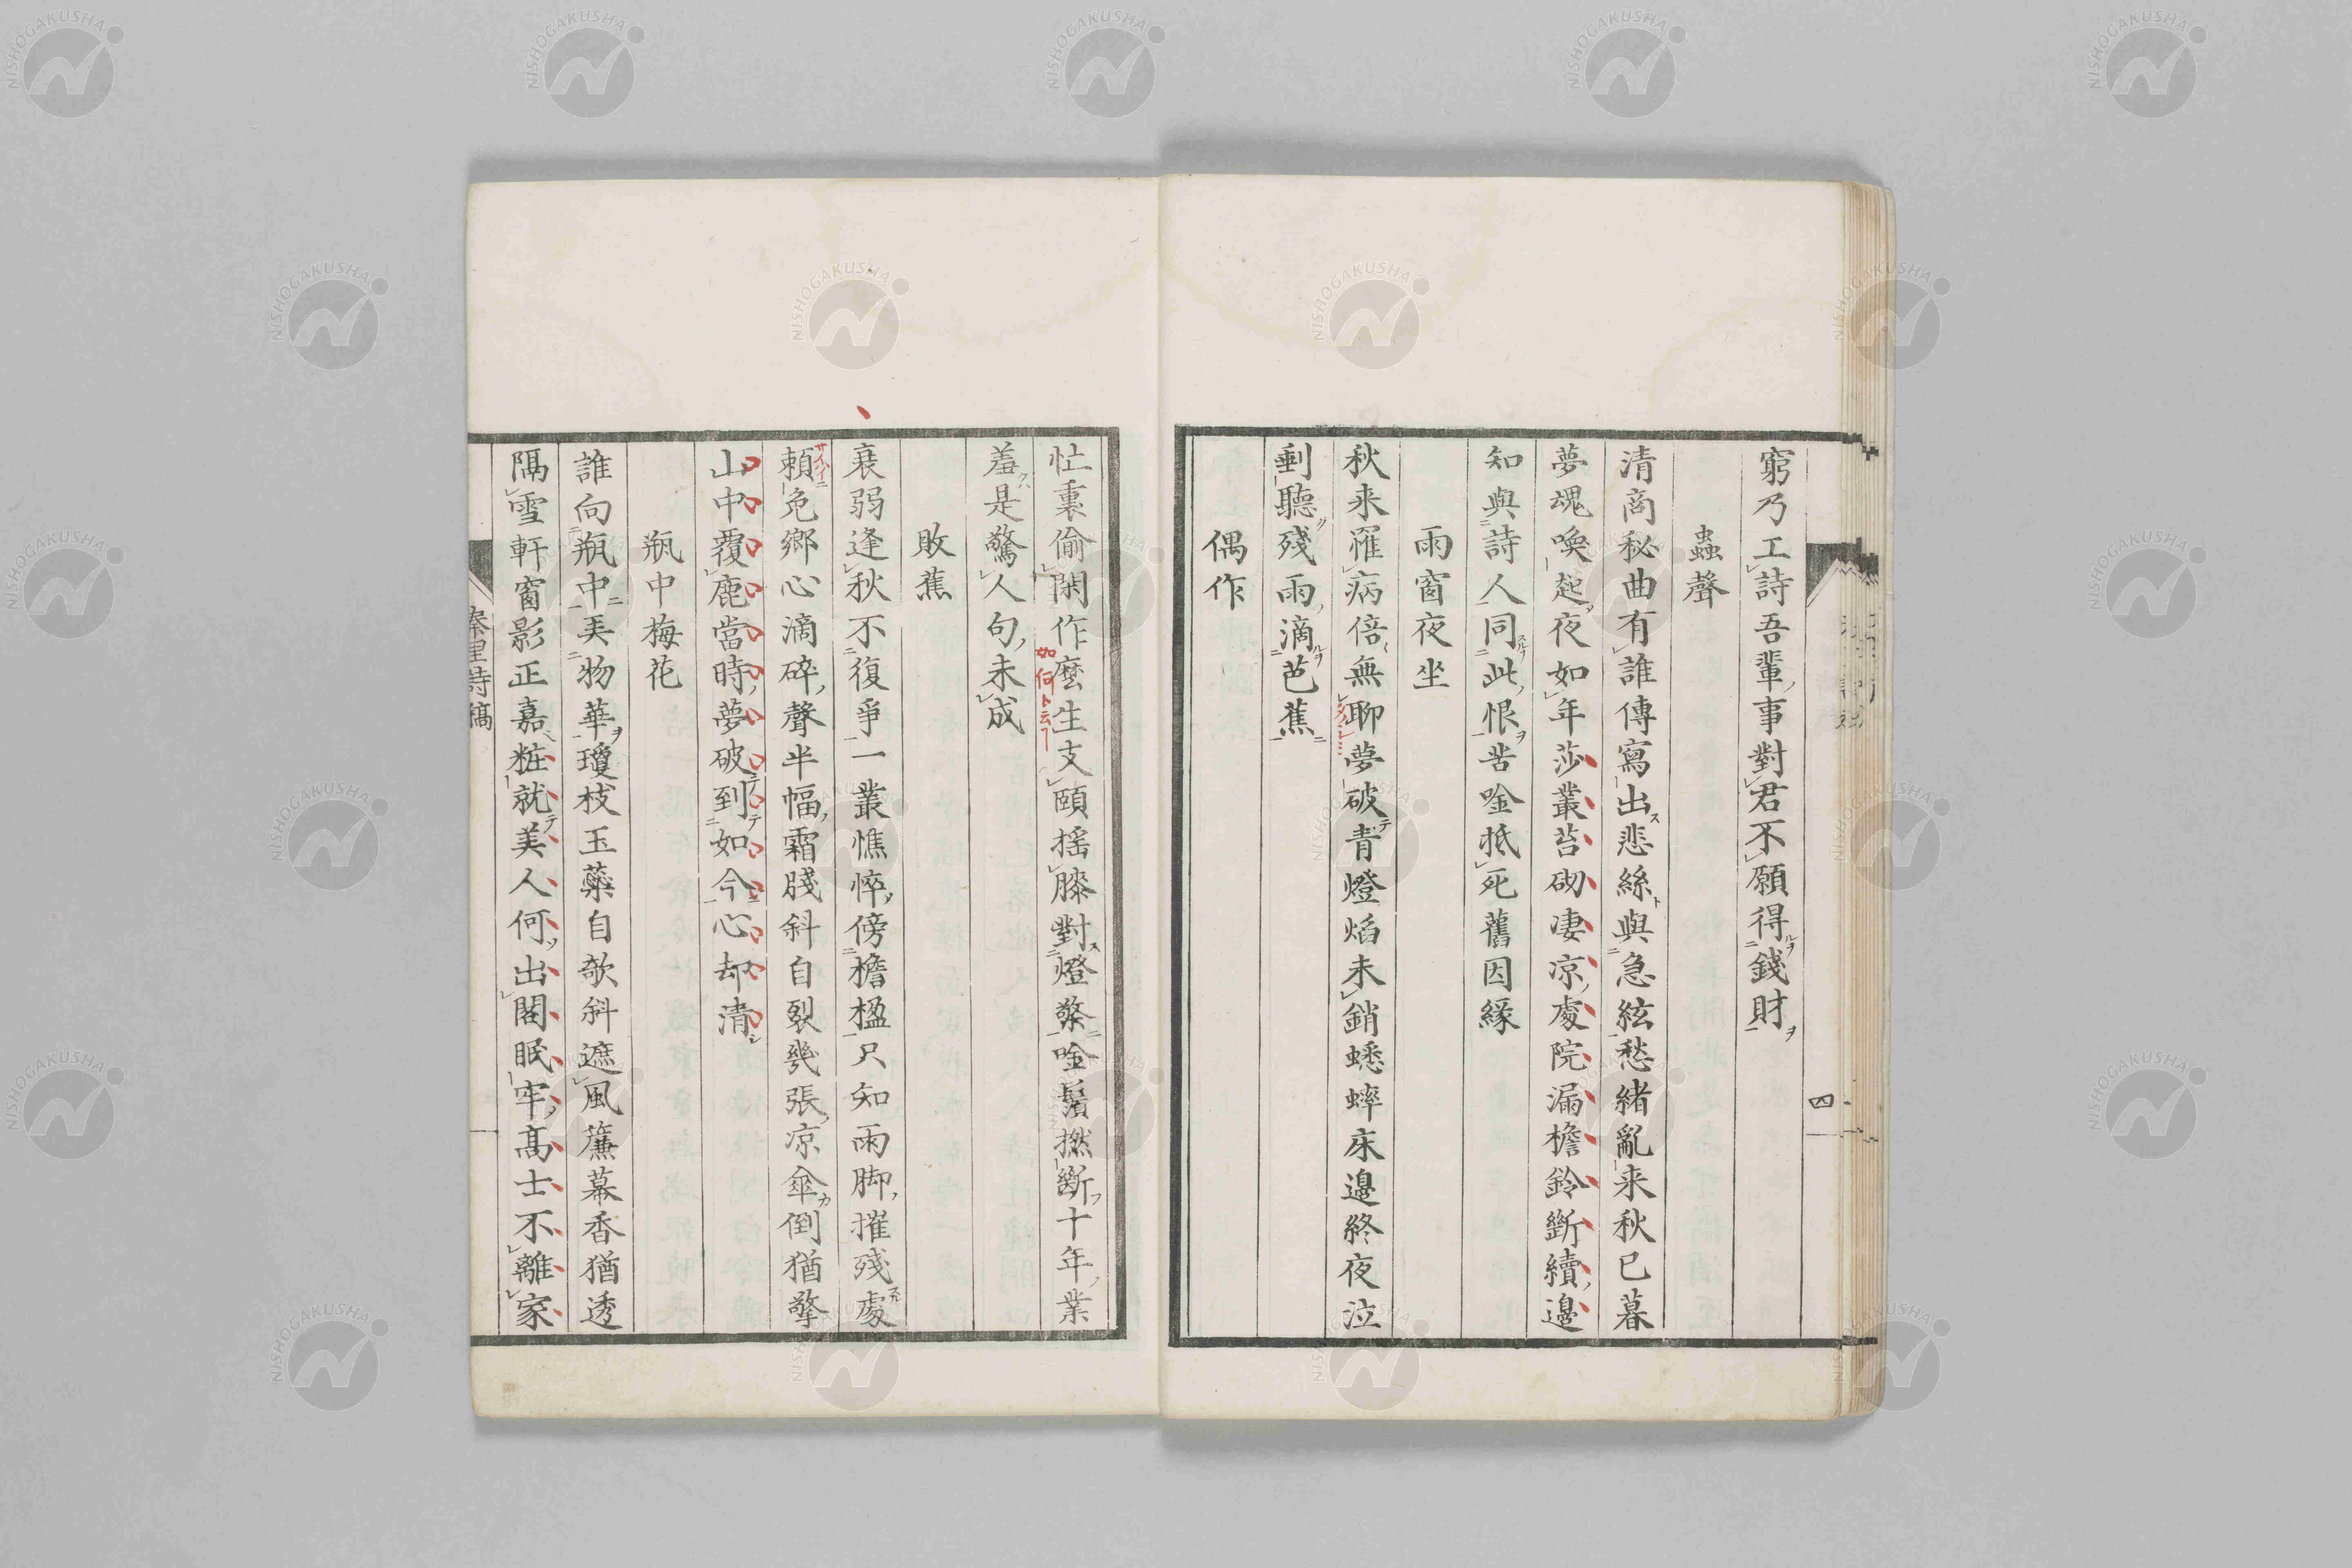 窮乃工詩吾輩事對君不願得錢財
蟲聲
清商秘曲有誰傳寫出悲絲與急絃愁緒亂来秋已暮
夢魂喚起夜如年莎叢苔砌凄凉處院漏檐鈴斷續邊
知與詩人同此恨苦唫抵死舊因緣
雨窗夜坐
秋来罹病倍無聊夢破青燈焰未銷蟋蟀床邊終夜泣
剩聽殘雨滴芭蕉
偶作
四
忙裏偷閑作麼生支頤摇膝對燈檠唫鬚撚斷十年業
如何ト云フ
羞是驚人句未成
敗蕉
衰弱逢秋不復爭一叢憔悴傍檐楹只知雨脚摧殘處
頼免郷心滴碎聲半幅霜牋斜自裂幾張凉傘倒猶擎
サイハイニ
山中覆鹿當時夢破到如今心却清
瓶中梅花
誰向瓶中弄物華瓊枝玉蘂自欹斜遮風簾幕香猶透
隔雪軒窗影正嘉粧就美人何出閣眠牢高士不離家
里詩稿
NISHOGAKUSHA